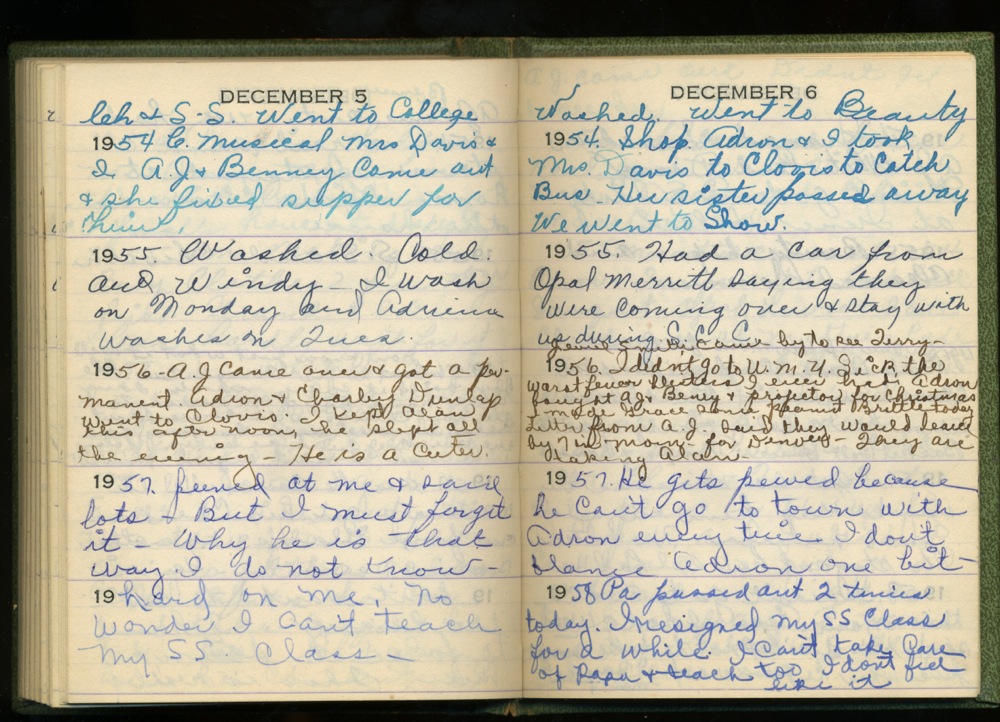 DECEMBER 5
Ch & S-S. Went to College
1954 C. musical Mrs Davis &
I. A.J & Benney Came out
& she fixed supper for
them.
1955. Washed. Cold.
and Windy - I Wash
on Monday and Adriena
washes on Tues.
1956 - A.J came over & got a per-
manent. Adron & Charley Dunlap
went to Clovis. I kept Alan
this afternoon, he slept all
the evening - He is a Cuter.
1957. peeved at me & said
lots - But I must forget
it - Why he is that
way I do not Know -
19 hard on me. No
wonder I Can't teach
my SS. Class -
DECEMBER 6
Washed. Went to Beauty
1954. Shop. Adron & I took
Mrs. Davis to Clovis to Catch
Bus. Her sister passed away
We went to Show.
1955. Had a Car from
Opal Merritt saying they
were coming over & stay with
us during C. C. C.
came by to see Terry-
1956. I didn't go to W.M.U. I sick, the
worst fever blisters I ever had. Adron
bought AJ & Beney a projector for Christmas
I made Grace some peanut Brittle today
Letter from A.J. said they would leave
by 7 in morn- for Denver - They are
taking Alan -
1957. He gets peeved because
he can't go to town with
Adron every time I don't
blame Adron one bit -
1958 Pa passed out 2 times
today. I resigned my SS Class
for a while. I Can't take Care
of Papa & teach too I don't feel
like it